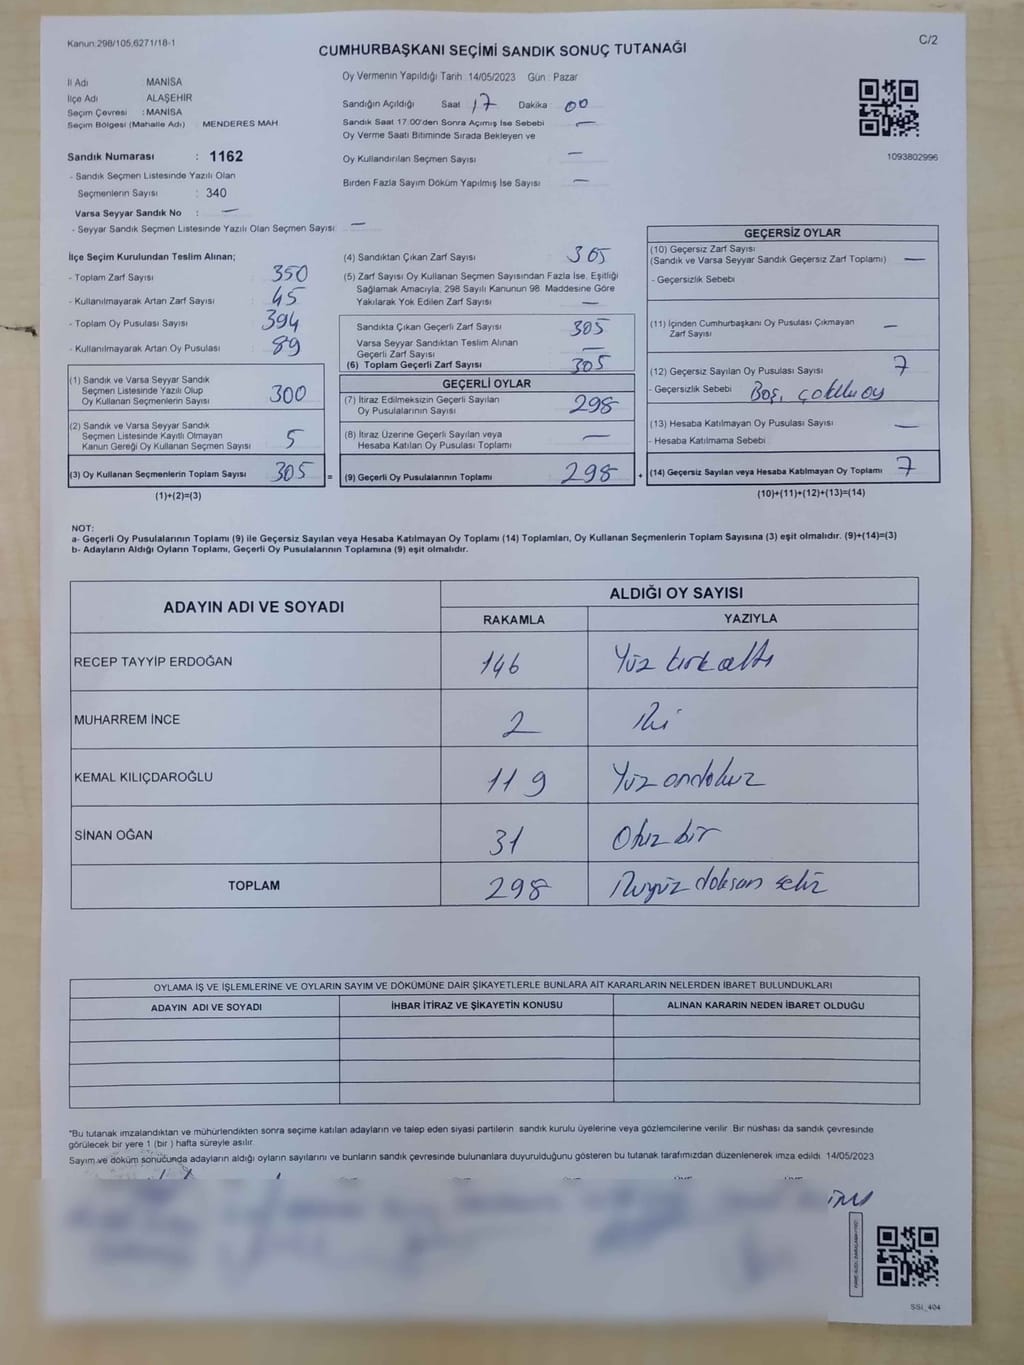 Kanun:298/105,6271/18-1
C/2
CUMHURBAŞKANI SEÇİMİ SANDIK SONUÇ TUTANAĞI
İl Adı MANİSA
İlçe Adı ALAŞEHİR
Seçim Çevresi : MANİSA
Seçim Bölgesi (Mahalle Adı) MENDERES MAH
Sandık Numarası : 1162
- Sandık Seçmen Listesinde Yazılı Olan
Seçmenlerin Sayısı : 340
Varsa Seyyar Sandık No : —
- Seyyar Sandık Seçmen Listesinde Yazılı Olan Seçmen Sayısı: —
Oy Vermenin Yapıldığı Tarih :14/05/2023 Gün : Pazar
Sandığın Açıldığı Saat 17 Dakika 00
Sandık Saat 17.00'den Sonra Açımış İse Sebebi —
Oy Verme Saati Bitiminde Sırada Bekleyen ve
Oy Kullandırılan Seçmen Sayısı —
Birden Fazla Sayım Döküm Yapılmış İse Sayısı —
1093802996
İlçe Seçim Kurulundan Teslim Alınan;
- Toplam Zarf Sayısı 350
- Kullanılmayarak Artan Zarf Sayısı : 45
- Toplam Oy Pusulası Sayısı 394
- Kullanılmayarak Artan Oy Pusulası : 89
(1) Sandık ve Varsa Seyyar Sandık
Seçmen Listesinde Yazılı Olup
Oy Kullanan Seçmenlerin Sayısı 300
(2) Sandık ve Varsa Seyyar Sandık
Seçmen Listesinde Kayıtlı Olmayan
Kanun Gereği Oy Kullanan Seçmen Sayısı 5
(3) Oy Kullanan Seçmenlerin Toplam Sayısı 305 =
(1)+(2)=(3)
(4) Sandıktan Çıkan Zarf Sayısı 305
(5) Zarf Sayısı Oy Kullanan Seçmen Sayısından Fazla İse, Eşitliği
Sağlamak Amacıyla; 298 Sayılı Kanunun 98. Maddesine Göre
Yakılarak Yok Edilen Zarf Sayısı —
Sandıkta Çıkan Geçerli Zarf Sayısı 305
Varsa Seyyar Sandıktan Teslim Alınan
Geçerli Zarf Sayısı —
(6) Toplam Geçerli Zarf Sayısı 305
GEÇERLİ OYLAR
(7) İtiraz Edilmeksizin Geçerli Sayılan
Oy Pusulalarının Sayısı 298
(8) İtiraz Üzerine Geçerli Sayılan veya
Hesaba Katılan Oy Pusulası Toplamı —
(9) Geçerli Oy Pusulalarının Toplamı 298 +
GEÇERSİZ OYLAR
(10) Geçersiz Zarf Sayısı
(Sandık ve Varsa Seyyar Sandık Geçersiz Zarf Toplamı) —
- Geçersizlik Sebebi
(11) İçinden Cumhurbaşkanı Oy Pusulası Çıkmayan
Zarf Sayısı —
(12) Geçersiz Sayılan Oy Pusulası Sayısı 7
- Geçersizlik Sebebi Boş, çoklu oy
(13) Hesaba Katılmayan Oy Pusulası Sayısı : —
- Hesaba Katılmama Sebebi
(14) Geçersiz Sayılan veya Hesaba Katılmayan Oy Toplamı 7
(10)+(11)+(12)+(13)=(14)
NOT:
a- Geçerli Oy Pusulalarının Toplamı (9) ile Geçersiz Sayılan veya Hesaba Katılmayan Oy Toplamı (14) Toplamları, Oy Kullanan Seçmenlerin Toplam Sayısına (3) eşit olmalıdır. (9)+(14)=(3)
b- Adayların Aldığı Oyların Toplamı, Geçerli Oy Pusulalarının Toplamına (9) eşit olmalıdır.
ADAYIN ADI VE SOYADI ALDIĞI OY SAYISI
RAKAMLA YAZIYLA
RECEP TAYYİP ERDOĞAN 146 Yüz kırk altı
MUHARREM İNCE 2 İki
KEMAL KILIÇDAROĞLU 119 Yüz ondokuz
SİNAN OĞAN 31 Otuz bir
TOPLAM 298 İkiyüz doksan sekiz
OYLAMA İŞ VE İŞLEMLERİNE VE OYLARIN SAYIM VE DÖKÜMÜNE DAİR ŞİKAYETLERLE BUNLARA AİT KARARLARIN NELERDEN İBARET BULUNDUKLARI
ADAYIN ADI VE SOYADI İHBAR İTİRAZ VE ŞİKAYETİN KONUSU ALINAN KARARIN NEDEN İBARET OLDUĞU
*Bu tutanak imzalandıktan ve mühürlendikten sonra seçime katılan adayların ve talep eden siyasi partilerin sandık kurulu üyelerine veya gözlemcilerine verilir. Bir nüshası da sandık çevresinde
görülecek bir yere 1 (bir ) hafta süreyle asılır.
Sayım ve döküm sonucunda adayların aldığı oyların sayılarını ve bunların sandık çevresinde bulunanlara duyurulduğunu gösteren bu tutanak tarafımızdan düzenlenerek imza edildi. 14/05/2023
SSI_404